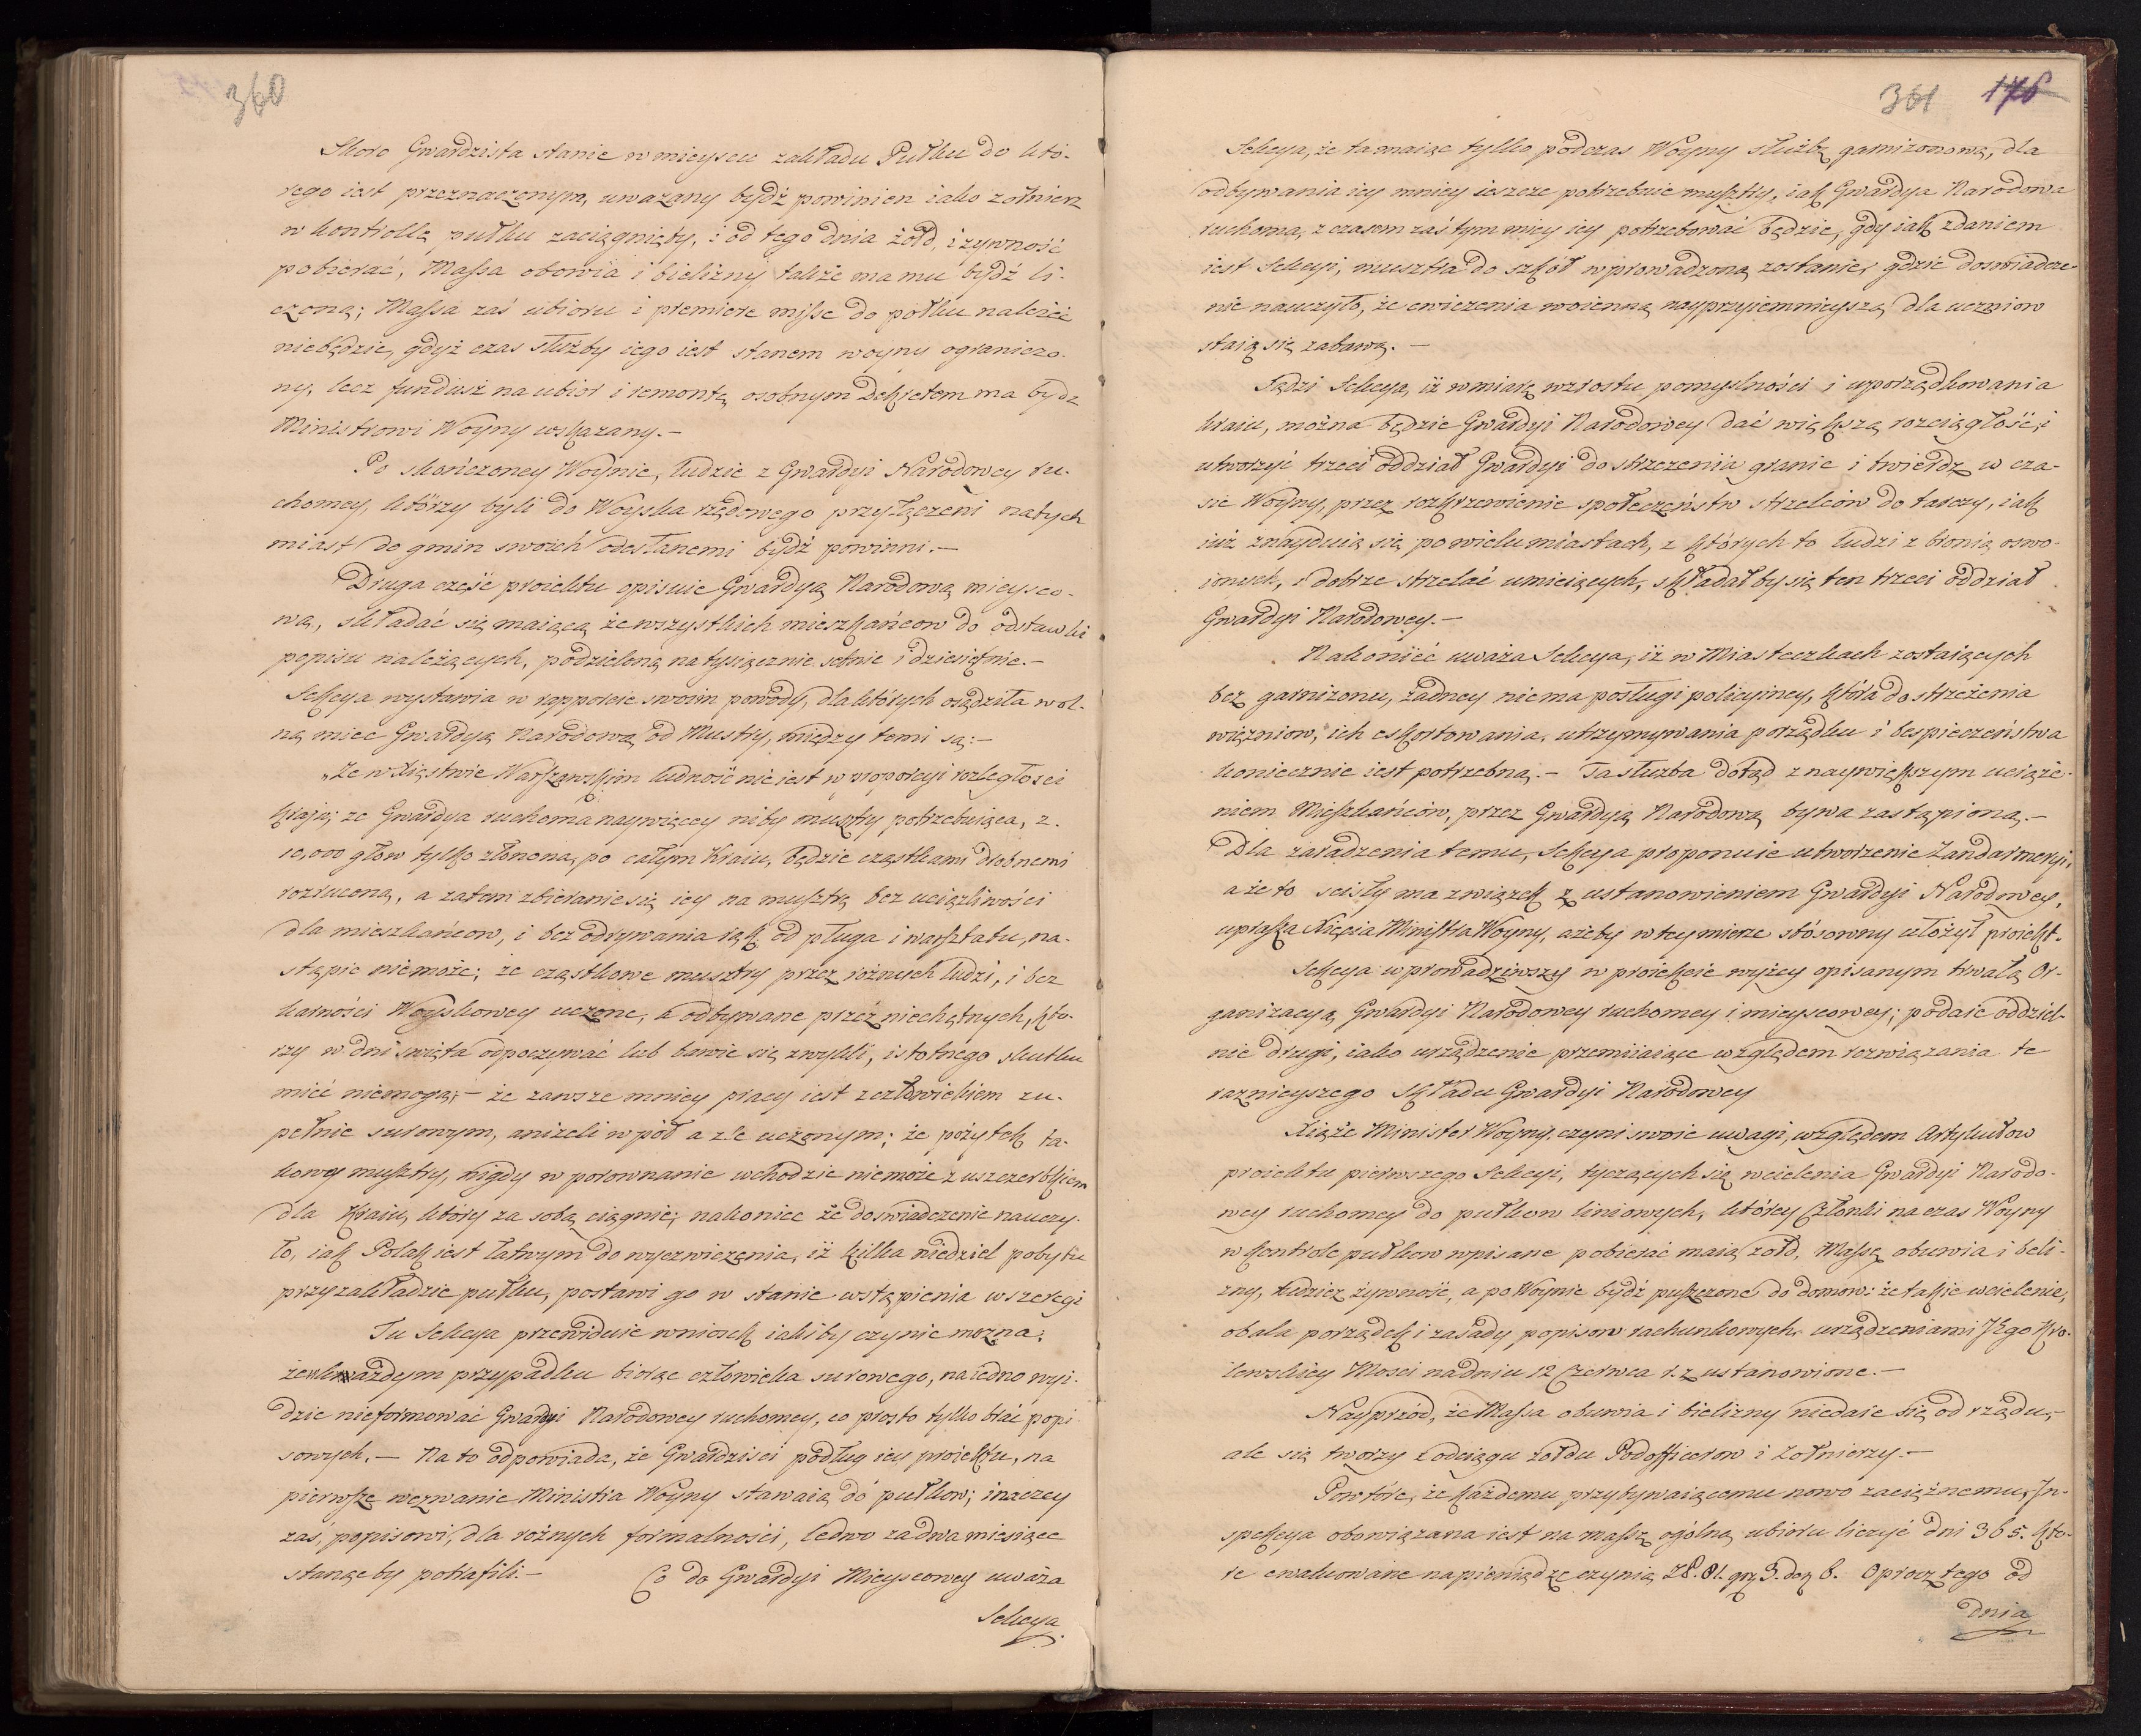 360
Skoro Gwardzista stanie w mieyscu zakładu Pułku do któ-
rego iest przeznaczonym, uwazany bydź powinien iako zołnierz
w kontrollę pułku zaciągnięty, i od tego dnia żołd, i zywność
pobierać, Massa obowia i bielizny także ma mu bydź li-
czoną; Massa zaś ubioru i premiere mise do połku należéć
niebędzie, gdyż czas służby iego iest stanem woyny ograniczo-
ny, lecz fundusz na ubior i remontę osobnym Dekretem ma bydz
Ministrowi Woyny wskazany.-
Po skończoney Woynie, ludzie z Gwardyi Narodowey ru-
chomey, którzy byli do Woyska rządowego przyłączeni natych
miast do gmin swoich odesłanemi bydź powinni.-
Druga część proiektu opisuie Gwardyą Narodową mieysco-
wą, składać się maiącą ze wszystkich mieszkańcow do odstawki
popisu należących, podzieloną na tysiącznie setnie i dziesiętnie.-
Sekcya wystawia w rapporcie swoim powody, dla których osądziła wol-
ną miec Gwardyą Narodową od Mustry, między temi są:-
„Ze w Xięstwie Warszawskim ludność nie iest w proporcyi rozległości
kraju; ze Gwardya ruchoma naywięcey niby musztry potrzebuiąca, z
10,000 głow tylko złonona, po całym Kraiu, będzie cząstkami drobnemi
rozrucona, a zatem zbieranie się iey na musztrę bez uciążliwości
dla mieszkańcow, i bez odrywania rąk od pługa i warsztatu, na-
stąpic niemoże; że cząstkowe musztry przez rożnych ludzi, i bez
karności Woyskowey uczone, a odbywane przéz niechętnych, któ-
rzy w dni swięta odpoczywać lub bawic się zwykli, istotnego skutku
mieć niemogą;- że zawsze mniey pracy iest z człowiekiem zu-
pełnie surowym, aniżeli wpół a zle uczonym; że pożytek ta-
kowey musztry, nigdy w porownanie wchodzic niemoże z uszczerbkiem
dla Kraiu, który za sobą ciągnie; nakoniec że doswiadczenie nauczy-
ło, iak Polak iest łatwym do wyczwiczenia, iż kilka niedziel pobytu
przy zakładzie pułku, postawi go w stanie wstąpienia w szeregi
Tu Sekcya przewiduie wniosek iakiby czynic mozna,
że w każdym przypadku biorąc człowieka surowego, na iedno wyi-
dzie nieformować Gwardyi Narodowey ruchomey, co prosto tylko brać popi
sowych.- Na to odpowiada, że Gwardzisci podług iey proiektu, na
pierwsze wezwanie Ministra Woyny stawaią do pułkow; inaczey
zaś, popisowi, dla rożnych formalności, ledwo za dwa miesiące
stanąć by potrafili.- Co do Gwardyi Mieyscowey uwáża
Sekcya
361 176
Sekcya, że ta maiąc tylko podczas Woyny służbę garnizonową, dla
odbywania iey mniey ieszcze potrzebuie musztry, iak Gwardya Narodowa
ruchoma, z czasem zaś tym mniey iey potrzebować będzie, gdy iak zdaniem
iest Sekcyi, musztra do szkół wprowadzoną zostanie, gdzie doswiadcze-
nie nauczyło, że cwiczenia woienną nayprzyiemnieyszą dla uczniow
staią się zabawą.-
Sądzi Sekcya, iż w miarę wzrostu pomyslności i uporządkowania
kraiu, można będzie Gwardyi Narodowey dać większą rozciągłość, i
utworzyć trzeci oddział Gwardyi do strzezeniia granic i twierdz w cza-
sie Woyny, przez rozkrzewienie społeczeństw strzelców do tarczy, iak
iuż znayduią się po wielu miastach, z których to ludzi z bronią oswo-
ionych, i dobrze strzelać umieiących, składałby się ten trzeci oddział
Gwardyi Narodowey.-
Nakoniéc uwáża Sekcya, iż w Miasteczkach zostaiących
bez garnizonu, żadney niema posługi policyiney, która do strzeżenia
więzniow, ich eskortowania, utrzymywania porządku i bespieczeństwa
koniecznie iest potrzebną.- Ta służba dotąd z naywiększym uciąże-
niem Mieszkańców, przez Gwardyą Narodową bywa zastąpioną.-
Dla zaradzenia temu, Sekcya proponuie utworzenie Żandarmeryi,
a że to scisły ma związek z ustanowieniem Gwardyi Narodowey,
uprasza Xięcia Ministra Woyny, ażeby w tey mierze stósowny ułożył proiekt.
Sekcya wprowadziwszy w proiekcie wyżey opisanym trwałą Or-
ganizacyą Gwardyi Narodowey ruchomey i mieyscowey; podaie oddziel-
nie drugi, iako urządzenie przemiiaiące względem rozwiązania te
raznieyszego składu Gwardyi Narodowey
Xiąże Minister Woyny czyni swoie uwagi, względem Artykułow
proiektu pierwszego Sekcyi, tyczących się wcielenia Gwardyi Narodo-
wey ruchomey do pułkow liniowych, którey Członki na czas Woyny
w kontrole pułkow wpisane pobierać maią zołd, Massę obuwia i beli-
zny, tudziez żywność, a po Woynie bydź puszczone do domow: że takie wcielenie,
obala porządek i zasady popisow rachunkowych urządzeniami JKgo Kro-
lewskiey Mosci na dniu 12 Czerwca r. z. ustanowione.-
Nayprzód, że Massa obuwia i bielizny niedaie się od rządu,-
ale się tworzy z odciągu żołdu Podofficerow i Zołnierzy.-
Powtóre, że każdemu przybywaiącemu nowo zaciężnemu, In-
spekcya obowiązana iest na massę ogólną ubioru liczyć dni 365. któ-
re ewaluowane na pieniądze czynią 78. Zł. gr 3. den 6. Oprocz tego od
dnia